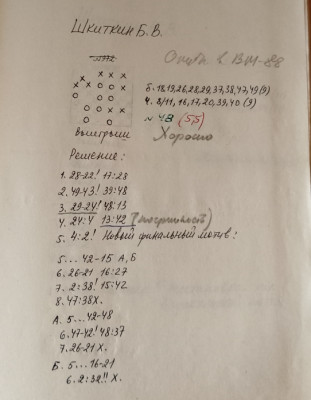 Шкиткин Б. В.
Опубл. в ВМ-88
Б. 18,19,26,28,29,37,38,47,49(9)
Ч. 8/11, 16,17,20,39,40 (9)
N 48 (5,5)
Выигрыш Хорошо
Решение:
1. 28-22! 17:28
2. 49-43! 39:48
3. 29-24! 48:13
4. 24:4 13:42 (погрешность)
5. 4:2! Новый финальный мотив:
5... 42-15 А, Б
6. 26-21 16:27
7. 2:38! 15:42
8. 47:38Х.
А. 5...42-48
6.47-42! 48:37
7.26-21 Х.
Б. 5...16-21
6. 2:32!! Х.